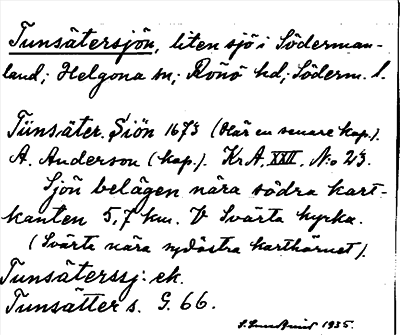 Tunsätersjön, liten sjö i Söderman-
land; Helgona sn; Rönö hd; Söderm. l.
Tünsäter. Siön 1673 (Här en senare kop.).
A. Anderson (kop.). Kr.A. XXII, N:o 23.
Sjön belägen nära södra kart-
kanten 5,7 km. V Svärta kyrka.
(Svärta nära sydöstra karthörnet).
Tunsäterssj: ek.
Tunsätter s. G. 66.
1935.